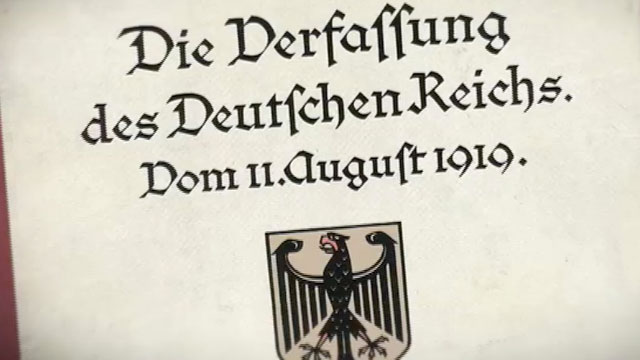 Die Verfaſſung
des Deutſchen Reichs.
Vom 11. Auguſt 1919.